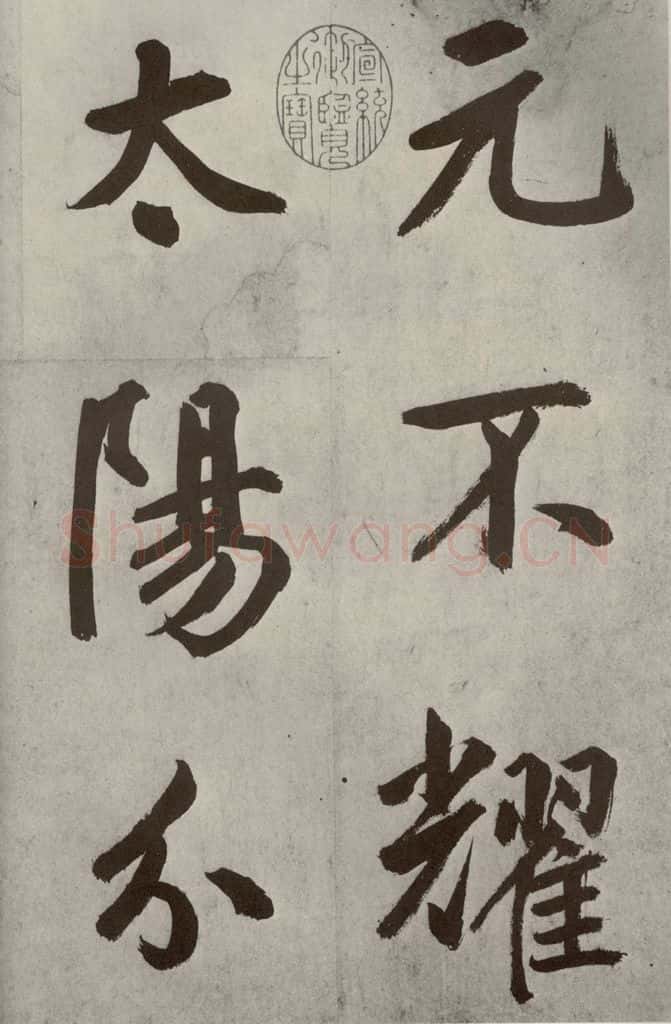 元不耀
太陽分
宣統御覽之寶
Shufawang.CN